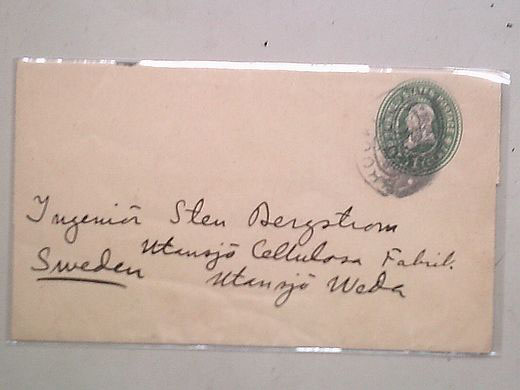 Ingeniör Sten Bergstrom
Utansjö Cellulosa Fabrik.
Sweden Utansjö Weda